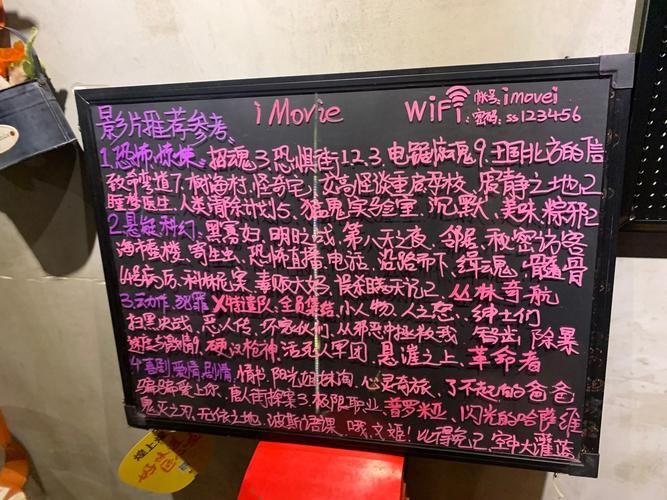 iMovie
WiFi 帐号:imovei
密码:ss123456
影片推荐参考、
1.恐怖惊悚:招魂3、恐惧街1 2.3、电锯惊魂9、王国北方的信
致命弯道7、怪奇宅、女高怪谈重返母校、寂静之地2
睡梦医生、人类清除计划5、猛鬼实验室、沉默、美味特邪2
2.悬疑科幻、黑寡妇、明日之战、第八天之夜、邻居、秘密访客
海市蜃楼、寄生虫、恐怖直播、电话、沿路而下、缉魂、骨
病历、科林犯案、毒贩大妈、误杀瞒天记2、丛林奇航
3.动作犯罪 X特遣队、全员集结、小人物、人之怒、绅士们
扫黑决战、恶人传、坏家伙们、从邪恶中拯救我、智齿、除暴
速度与激情9、硬汉枪神、活死人军团、悬崖之上、革命者
4.喜剧爱情剧情、情书、阳光姐妹淘、心灵奇旅、了不起的爸爸
骗骗爱上你、唐人街探案3、极限职业、普罗米亚、闪光的哈萨维
鬼灭之刃、无依之地、波斯语课、哦,文姬!比得兔2、空中大灌篮